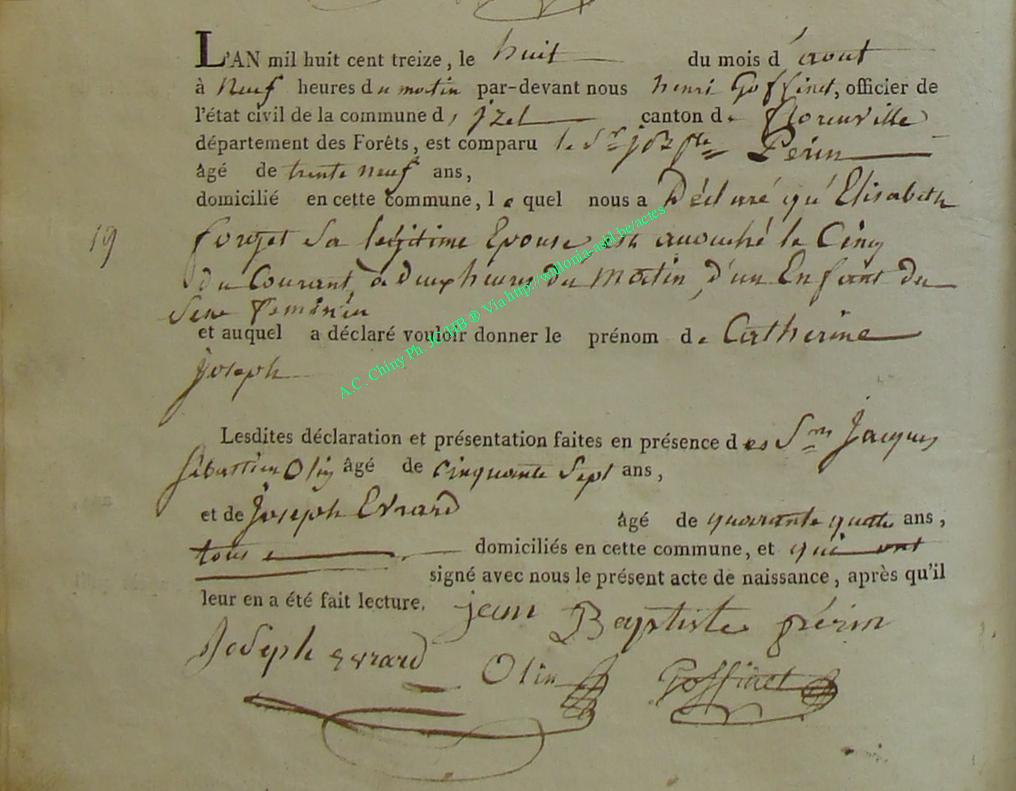 L'AN mil huit cent treize, le huit du mois d'aout
à Neuf heures du matin par-devant nous henri Goffinet, officier de
l'état civil de la commune d, jzel canton de florenville
département des Forêts, est comparu le Sr Perin
âgé de trente neuf ans,
domicilié en cette commune, lequel nous a Déclaré qu'Elisabeth
19 forget Sa légitime Epouse est accouché le Cinq
du Courant, à deux heures Du Matin, d'un Enfant du
Sexe feminin
et auquel a déclaré vouloir donner le prénom de Catherine
joseph
Lesdites déclaration et présentation faites en présence des Srs Jacques
Sébastien Olin âgé de Cinquante Sept ans,
et de Joseph Evrard âgé de quarante quatre ans,
tous domiciliés en cette commune, et qui ont
signé avec nous le présent acte de naissance, après qu'il
leur en a été fait lecture. jean Baptiste périn
Joseph evrard Olin Goffinet
A.C. Chiny Ph. JCl HB ® Via http://wallonia-asbl.be/actes